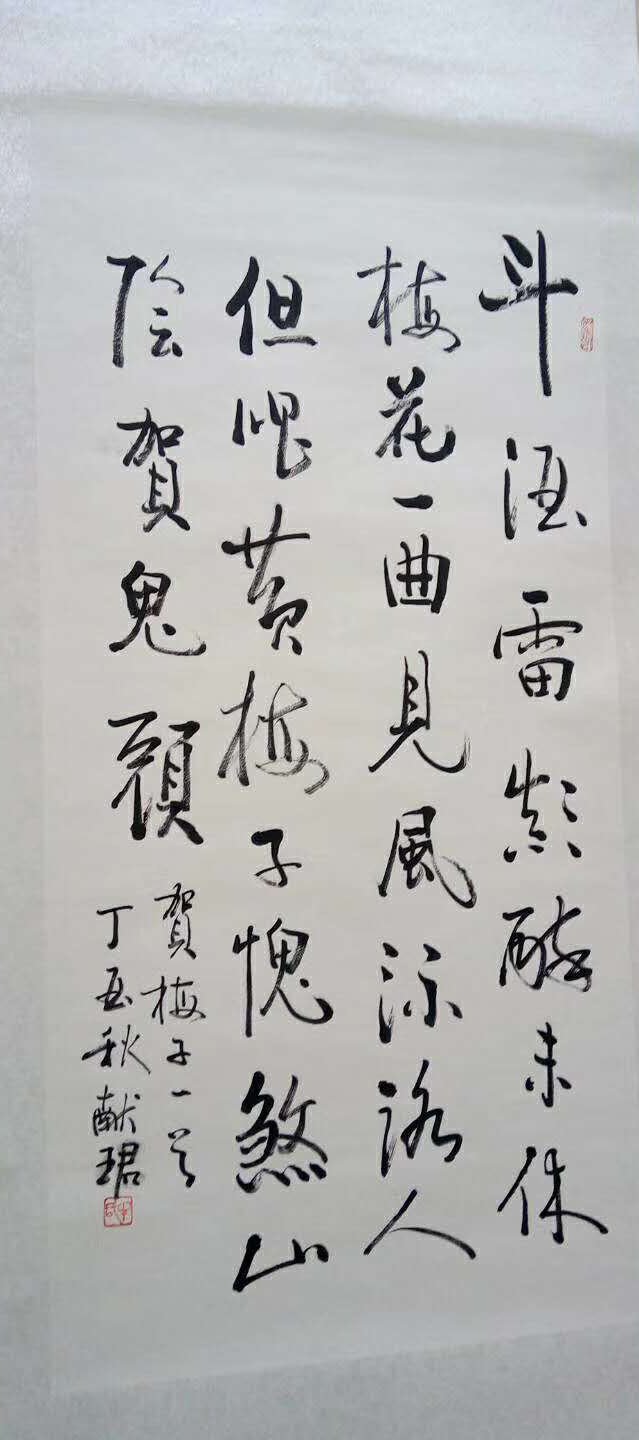 斗酒雷颠醉未休
梅花一曲見風流 人
但 黄梅子愧煞山
陰賀鬼頭
賀梅子一首
丁丑秋献珺